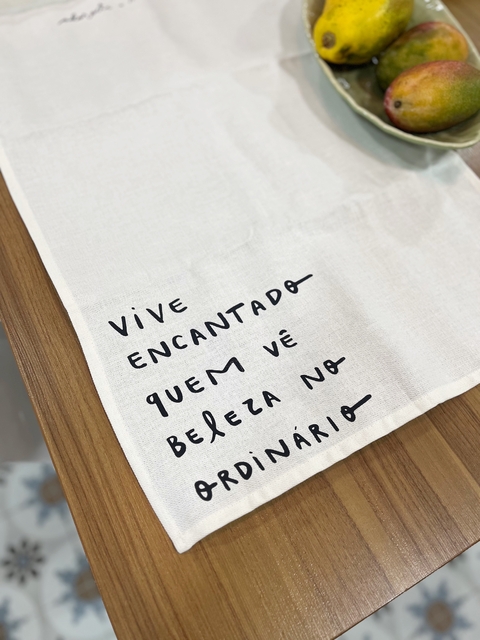 VIVE
ENCANTADO
QUEM VÊ
BELEZA NO
ORDINÁRIO